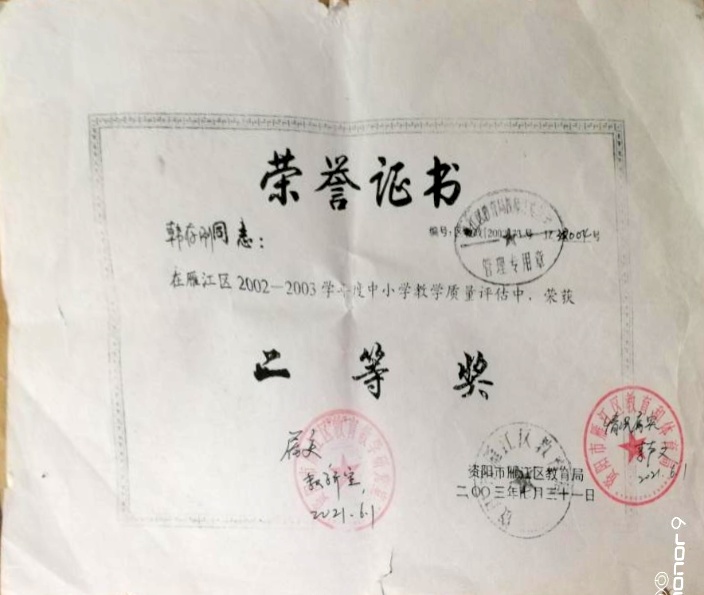 荣誉证书
韩存刚同志：
编号：
管理专用章
在雁江区2002—2003学年度中小学教学质量评估中，荣获
二等奖
属实
教研室
2021.6.1
资阳市雁江区教育局
二〇〇三年七月三十一日
资阳市雁江区教育和体育局
情况属实
2021.6.1
honor 9